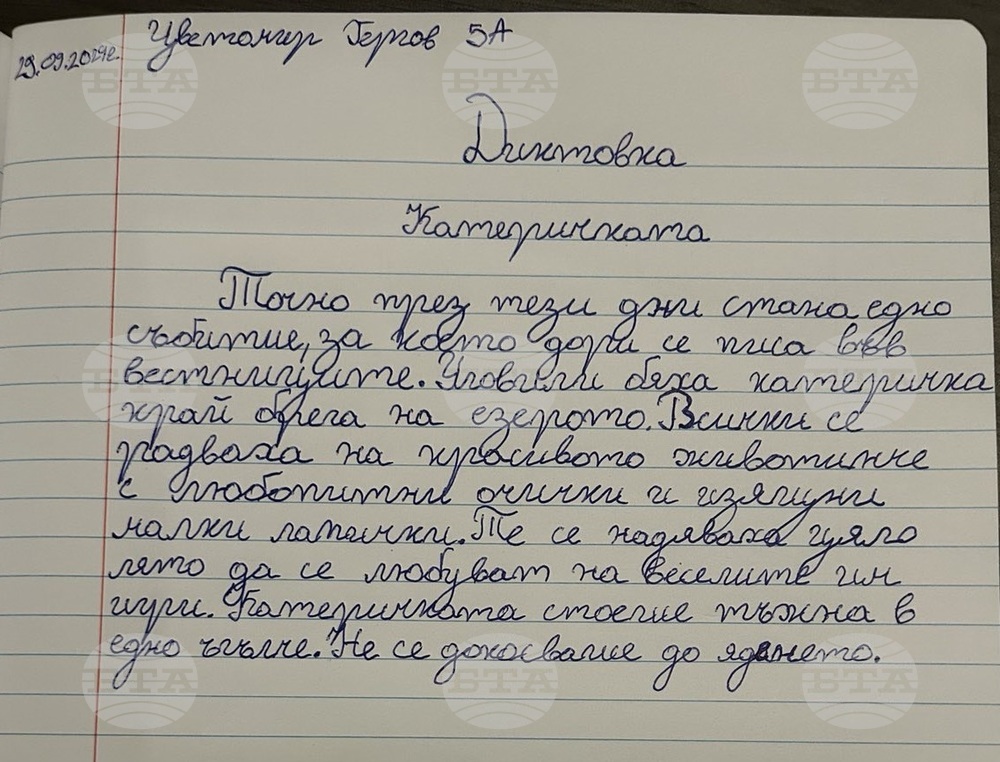 29.09.2024г.
Цветомир Гергов 5А
Диктовка
Катеричката
Точно през тези дни стана едно
събитие, за което дори се писа във
вестниците. Уловили бяха катеричка
край брега на езерото. Всички се
радваха на красивото животинче
с любопитни очички и изящни
малки лапички. Те се надяваха цяло
лято да се любуват на веселите им
игри. Катеричката стоеше тъжна в
едно ъгълче. Не се докосваше до яденето.
БТА
БТА
БТА
БТА
БТА
БТА
БТА
БТА
БТА